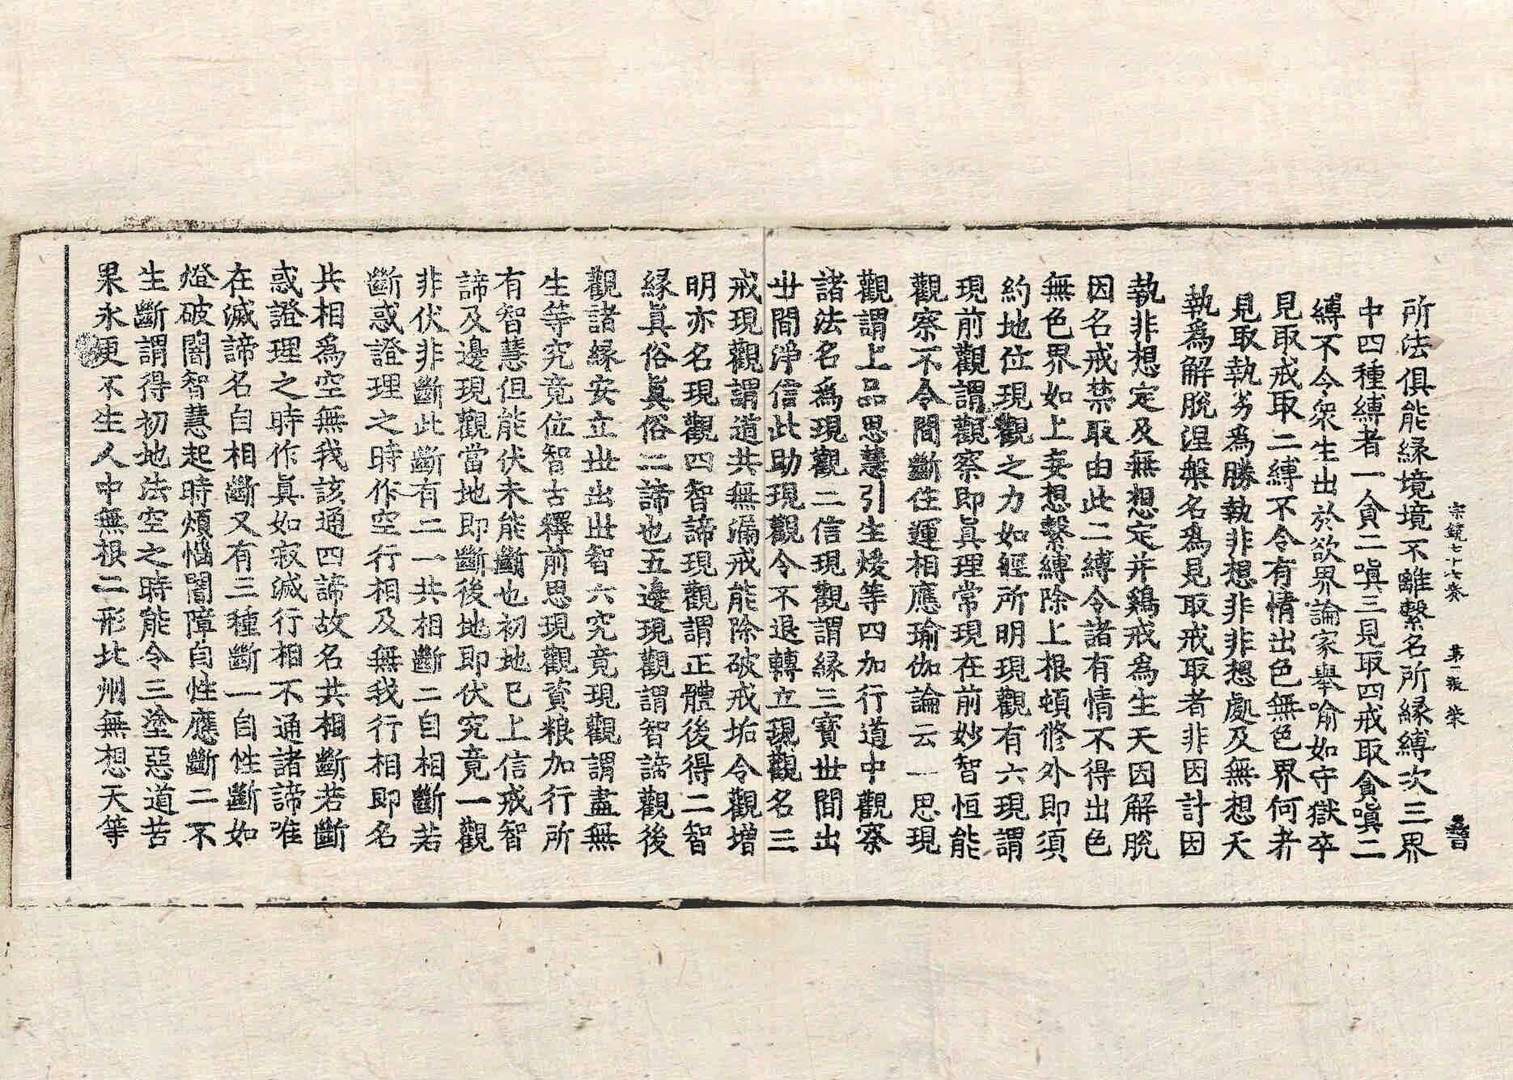 宗鏡七十七卷 第二張 榮
所法俱能緣境境不離繫名所緣縛次三界
中四種縛者一貪二嗔三見取四戒取貪嗔二
縛不令衆生出於欲界論家舉喻如守獄卒
見取戒取二縛不令有情出色無色界何者
見取執劣爲勝執非想非非想處及無想天
執爲解脫涅槃名爲見取戒取者非因計因
執非想定及無想定并鷄戒爲生天因解脫
因名戒禁取由此二縛令諸有情不得出色
無色界如上妄想繫縛除上根頓修外即須
約地位現觀之力如經所明現觀有六現謂
現前觀謂觀察即眞理常現在前妙智恒能
觀察不令間斷任運相應瑜伽論云一思現
觀謂上品思慧引生煖等四加行道中觀察
諸法名爲現觀二信現觀謂緣三寶世間出
世間淨信此助現觀令不退轉立現觀名三
戒現觀謂道共無漏戒能除破戒垢令觀增
明亦名現觀四智諦現觀謂正體後得二智
緣眞俗眞俗二諦也五邊現觀謂智諦觀後
觀諸緣安立世出世智六究竟現觀謂盡無
生等究竟位智古釋前思現觀資粮加行所
有智慧但能伏未能斷也初地已上信戒智
諦及邊現觀當地即斷後地即伏究竟一觀
非伏非斷此斷有二一共相斷二自相斷若
斷惑證理之時作空行相及無我行相即名
共相爲空無我該通四諦故名共相斷若斷
惑證理之時作眞如寂滅行相不通諸諦唯
在滅諦名自相斷又有三種斷一自性斷如
燈破闇智慧起時煩惱闇障自性應斷二不
生斷謂得初地法空之時能令三塗惡道苦
果永更不生人中無根二形北州無想天等